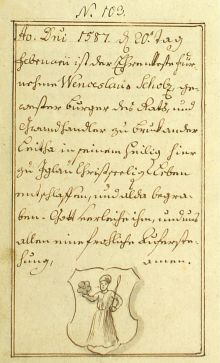 N. 103.
Ao. Dni 1587. d. 20t. tag
Febrarii ist der Ehrnveste für
nehme Wenceslaus Scholz, ge-
wester burger des Raths, und
handler zu bruk an der
Leitha in seinem heilig hier
zu Iglau Christseelig lieben
entschlaffen, und alda begra-
ben. Gott verleihe ihm, und uns
allen eine fröhliche Auferste-
hung, amen.